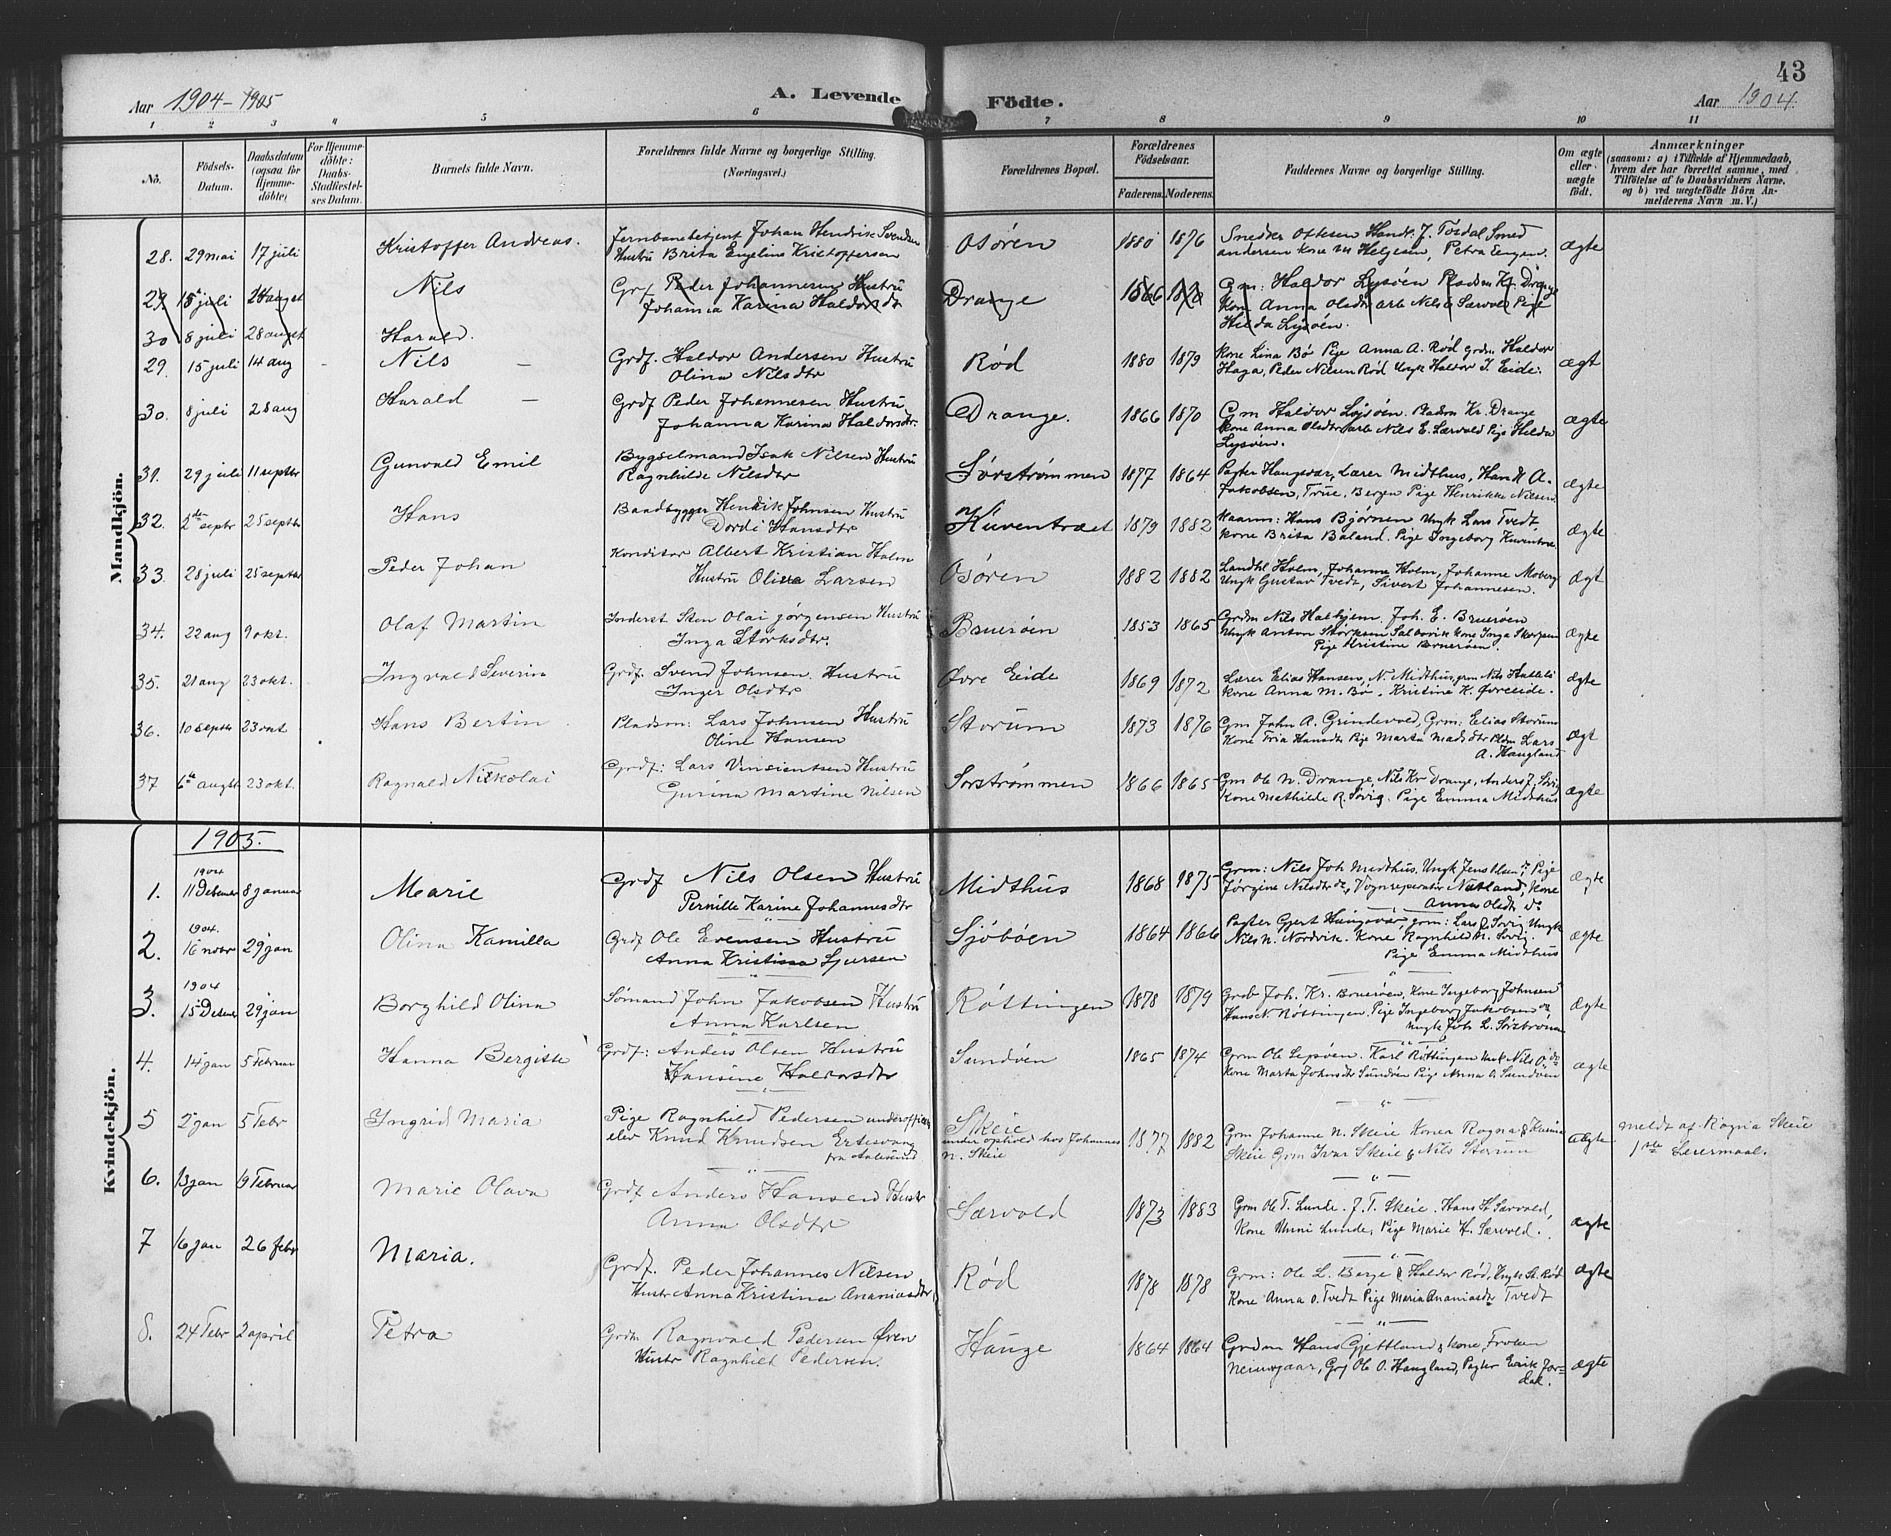 43
Aar 1904-1905 A. Levende Födte. Aar 1904
1 2 3 4 5 6 7 8 9 10 11
No. Födsels-Datum. Daabsdatum (ogsaa for Hjemmedöbte) For Hjemmedöbte: Daabs-Stadfæstelses Datum. Barnets fulde Navn. Forældrenes fulde Navne og borgerlige Stilling. (Næringsvei.) Forældrenes Bopæl. Forældrenes Födselsaar. Faderens. Moderens. Faddernes Navne og borgerlige Stilling. Om ægte eller uægte födt. Anmærkninger (saasom: a) i Tilfælde af Hjemmedaab, hvem der har forrettet samme, med Tilföielse af to Daabsvidners Navne, og b) ved uægtefödte Börn Anmelderens Navn m. V.)
Mandkjön.
28. 29 mai 17 juli Kristoffer Andreas. Jernbanebetjent Johan Hendrik Svendsen
Hustru Brita Engeline Kristofferson Osören 1880 1876 Snedker Ottesen Handl. J. Tosdal Smed
andersen kone M Helgesen, Petra Engen. ægte
29. 15 juli 28 augst Nils Grf Peder Johannesen Hustru
Johanna Karina Haldorsdtr Drange 1866 1870 Gm: Haldor Lysöen Pladsm Kr. Drange
Kone Anna Olsdtr arb Nils E Særvold Pige
Helda Lysöen.
30 8 juli 28 augst Harald.
29. 15 juli 14 aug Nils – Grdf. Haldor Andersen Hustru
Olina Nilsdtr Röd 1880 1879 Kone Lina Bø Pige Anna A. Röd grdm Haldor
Haga, Peder Nilsen Röd Ungk Haldor J. Eide. ægt
30. 8 juli 28 aug Harald – Grdf Peder Johannesen Hustru
Johanna Karina Haldorsdtr. Drange. 1866 1870 Gm Haldor Lysöen. Pladsm Kr. Drange
Kone Anna Olsdtr arb Nils E. Særvold Pige Helda
Lysöen. ægte
31. 29 juli 11 septbr Gunvald Emil Bygselmand Isak Nilsen Hustru
Ragnhilde Nilsdtr Sörströmmen 1877 1864 Pagter Haugsvær, Lærer Midthus, Hans H A.
Jakobsen, Frue Bergen Pige Henrikke Nilsen. ægte
32. 2de septr 25 septbr Hans Baadbygger Hendrik Johnsen Hustru
Dordi Hansdtr Kuventræet 1879 1882 Kaarm: Hans Bjørnen Ungk Lars Tvedt,
Kone Brita Baland. Pige Ingeborg Kuventræ. ægte
33. 28 juli 25 septbr Peder Johan Konditor Albert Kristian Holm
Hustru Olina Larsen Osören 1882 1882 Landhl Holm, Johanne Holm, Johanne Moberg
Ungk Gustav Tvedt, Sivert Johannesen. ægt
34. 22 aug 9 okt. Olaf Martin Inderst Sten Olai Jörgensen Hustru
Inga Størksdtr. Brueröen 1853 1865 Grdm Nils Halhjem. Joh. E. Bruröen
Ungk Anton Størksen Salbovik Kone Inga Skorpen
Pige Kristine Bruröen. ægte
35. 21 aug 23 okt. Ingvald Severin Grdf. Svend Johnsen Hustru
Inger Olsdtr Övre Eide 1869 1872 Lærer Elias Hansen, N. Midthus, grm Nils Hatleli
Kone Anna M. Bø. Kristine K. Övreeide. ægte
36. 10 septbr 23 okt Hans Bertin Pladsm: Lars Johnsen Hustru
Oline Hansen Storum 1873 1876 Gm John A. Grindevold, Grm: Elias Storum
Kone Fria Hansdtr Pige Marta Madsdtr Pldm Lars
A. Haugland ægt
37 6te augst 23 okt. Ragnald Nikolai Grdf: Lars Vinsientsen Hustru
Gurina Martine Nilsen Sorströmmen 1866 1865 Gm Ole N. Drange, Nils Kr Drange, Anders J. Sörig
Kone Mathilde R. Sörig. Pige Emma Midthus ægte
Kvindekjön.
1905.
1. 1904 11 Desember 8 januar Marie Grdf Nils Olsen Hustru
Pernille Karine Johannesdtr Midthus 1868 1875 Grm: Nils Joh Midthus, Ungk Jens Olsen, Pige
Jörgine Nilsdtr do, Vognreperatör Natland, Kone
Anna Olsdtr do ægte
2. 1904. 16 novbr 29 jan Olina Kamilla Grdf Ole Evensen Hustru
Anna Kristina Sjursen Sjöböen 1864 1866 Pagter Gjert Haugsvær, grm: Lars J. Sörig Ungk
Nils N. Nordvik. Kone Ragnhild M. Sörig.
Pige Emma Midthus ægte
3. 1904 15 Desemer 29 jan Borghild Olina Sömand John Jakobsen Hustru
Anna Karlsen Röttingen 1878 1879 Grdb Joh. Kr. Bruröen, Kone Ingeborg Johnsen
Hans N. Röttingen. Pige Ingeborg Jakobsen do,
Ungk Joh L. Sörström ægte
4. 14 jan 5 Februar Hanna Bergitte Grdf: Anders Olsen Hustru
Hansine Haldorsdtr Sundöen 1865 1874 Grm Ole Lepsöen. Karl Röttingen Ungk Nils O. do
Kone Marta Johnsdtr Sundöen Pige Anna A. Sundöen ægte
5 2 jan 5 Febr Ingrid Maria Pige Ragnhild Pedersen underofficers
elev Knud Knudsen Ertesvaag
fra Aalesund Skeie
under ophold hos Johannes
N. Skeie 1877 1882 Grm Johanne N. Skeie Konea Ragna & Karina
Skeie Grm Ivar Skeie & Nils Storum uægte meldt af Ragna Skeie
1ste Leiermaal.
6. 13 jan 19 Februar Marie Olava Grdf Anders Hansen Hustr
Anna Olsdtr Særvold 1873 1883 Grm Ole T. Lunde. J. T. Skeie. Hans H Særvold,
Kone Unni Lunde, Pige Marie H. Særvold. ægte
7 16 jan 26 febr Maria. Grdf. Peder Johannes Nilsen
Hustr Anna Kristina Ananiasdtr Röd 1878 1878 Grm: Ole L. Berge & Haldor Röd, Ungk St. Röd
Kone Anna O. Tvedt Pige Maria Ananiasdtr Tvedt ægte
8. 24 Febr 2 april Petra Grdm Ragnvald Pedersen Övre
Hustr Ragnhilt Pedersen. Hauge 1864 1864 Grdm Hans Gjettland & kone, Froken
Neumgaar, Grf Ole O. Haugland, Pagter Erik Jor-
dal. ægte